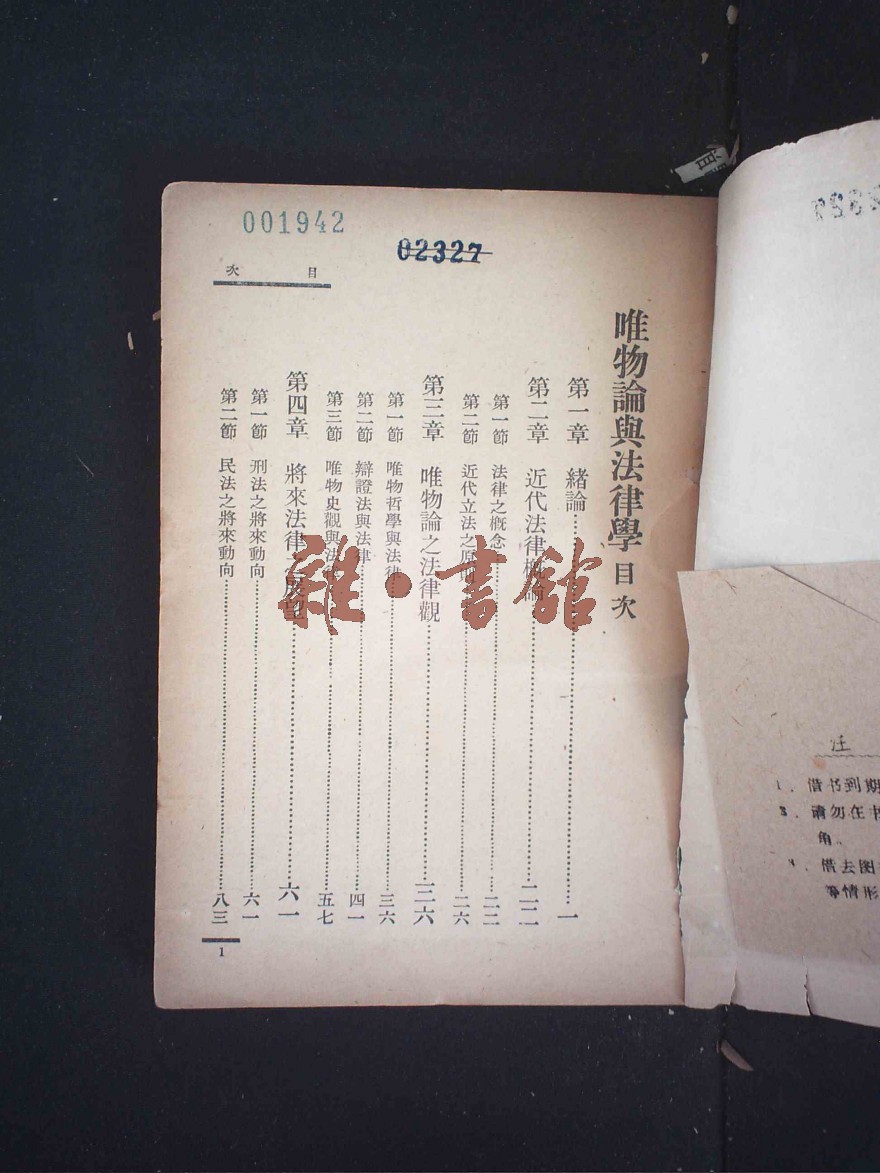 001942
02327
目次
唯物論與法律學 目次
第一章 緒論 一
第二章 近代法律概論 二二
第一節 法律之概念 二二
第二節 近代立法之原則 二六
第三章 唯物論之法律觀 三六
第一節 唯物哲學與法律 三六
第二節 辯證法與法律 四一
第三節 唯物史觀與法律 五七
第四章 將來法律之展望 六一
第一節 刑法之將來動向 六一
第二節 民法之將來動向 八三
1
雜·書館
注
1．借书到期
3．请勿在书
角。
4．借去图
等情形